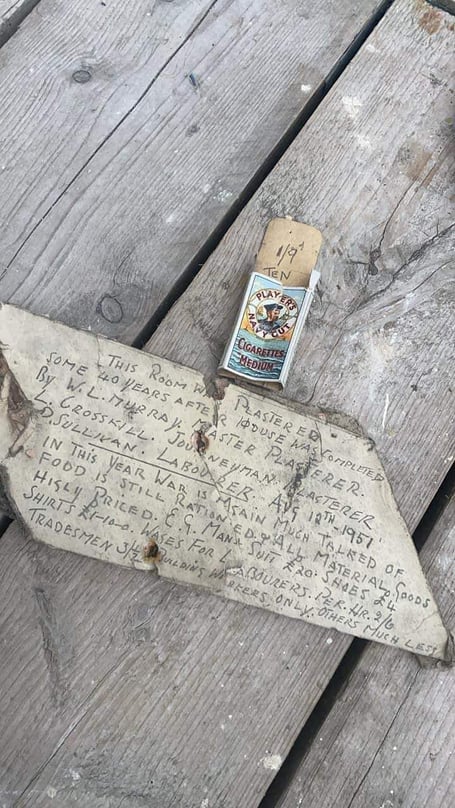 1/9d
TEN
PLAYER'S
NAVY CUT
CIGARETTES
MEDIUM
THIS ROOM WAS PLASTERED
SOME 40 YEARS AFTER HOUSE WAS COMPLETED
BY W.L. MURRAY. MASTER PLASTERER.
L CROSSKILL. JOURNEYMAN PLASTERER
D SULLIVAN. LABOURER. AUG 18TH. 1951
IN THIS YEAR WAR IS AGAIN MUCH TALKED OF
FOOD IS STILL RATIONED & ALL MATERIAL GOODS
HIGLY PRICED. E.G. MANS SUIT £20. SHOES £4
SHIRTS £1-10-0. WAGES FOR LABOURERS. PER. HR. 2/6
TRADESMEN BUILDING WORKERS ONLY. OTHERS MUCH LESS